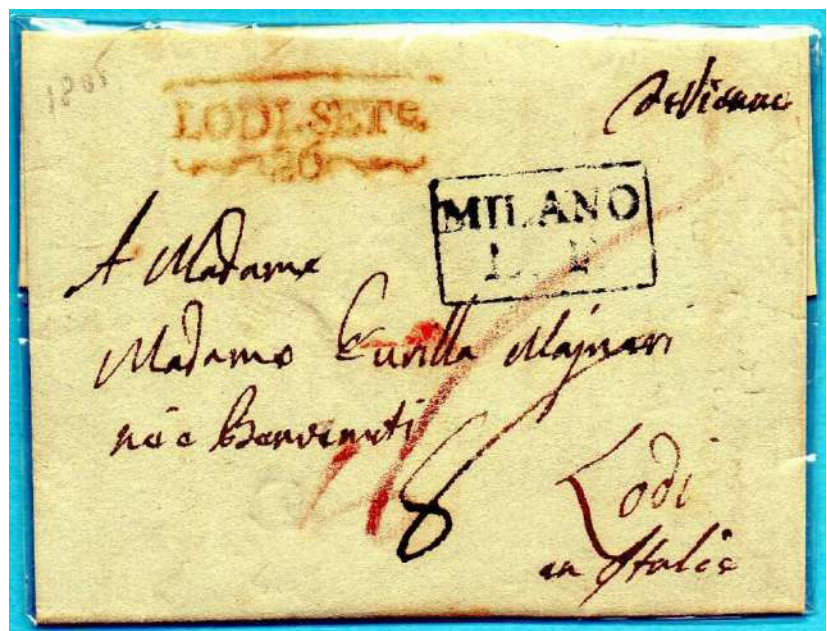 1805
LODI. SETe.
26
de Vienne
MILANO
L. F
A Madame
Madame Camilla Majneri
née Benvenuti
8
Lodi
en Italie